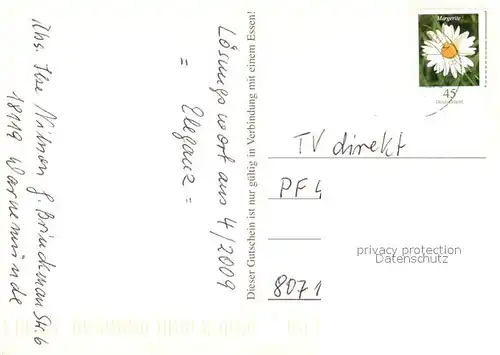 Abs. Ilse
J. Brinckman Str. 6
18119 Warnemünde
Lösungswort aus 4/2009
= Eleganz =
Dieser Gutschein ist nur gültig in Verbindung mit einem Essen!
Margerite
45
TV direkt
PF 4
8071
privacy protection
Datenschutz